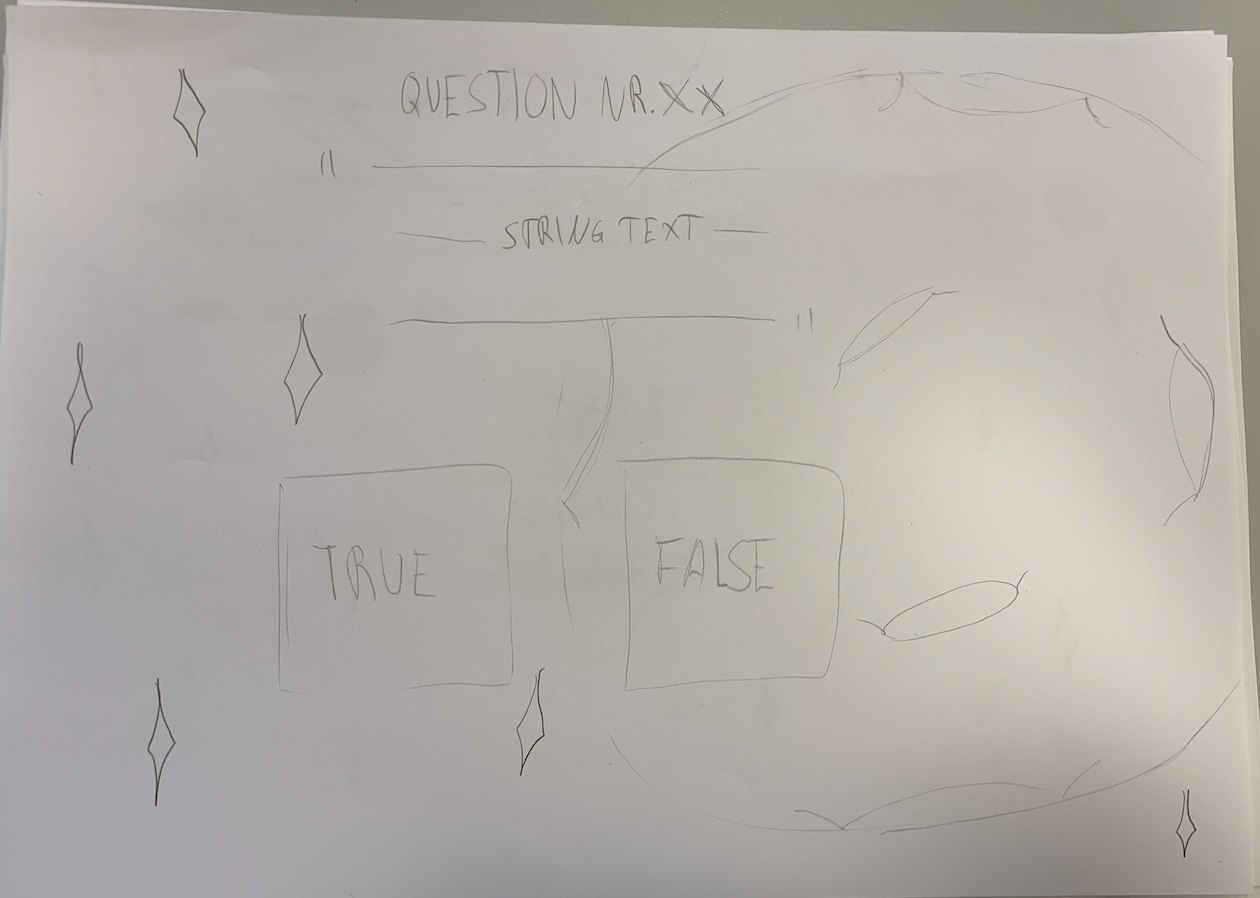 QUESTION NR.XX
"
STRING TEXT
"
TRUE
FALSE